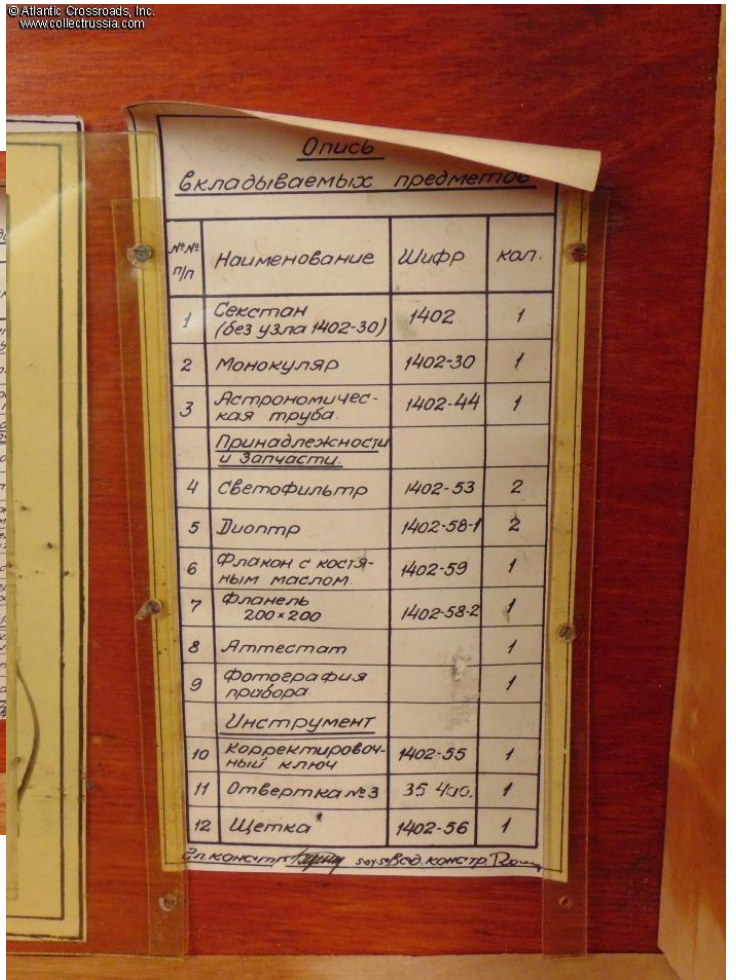 © Atlantic Crossroads, Inc.
www.collectrussia.com
Опись
вкладываемых предметов
№№ п/п Наименование Шифр кол.
1 Секстан (без узла 1402-30) 1402 1
2 Монокуляр 1402-30 1
3 Астрономичес-
кая труба. 1402-44 1
Принадлежности
и Запчасти.
4 Светофильтр 1402-53 2
5 Диоптр 1402-58-1 2
6 Флакон с костя-
ным маслом. 1402-59 1
7 Фланель
200×200 1402-58-2 1
8 Аттестат 1
9 Фотография
прибора. 1
Инструмент
10 Корректировоч-
ный ключ 1402-55 1
11 Отвертка №3 35 1
12 Щетка 1402-56 1
Гл. констр. Вед. констр.